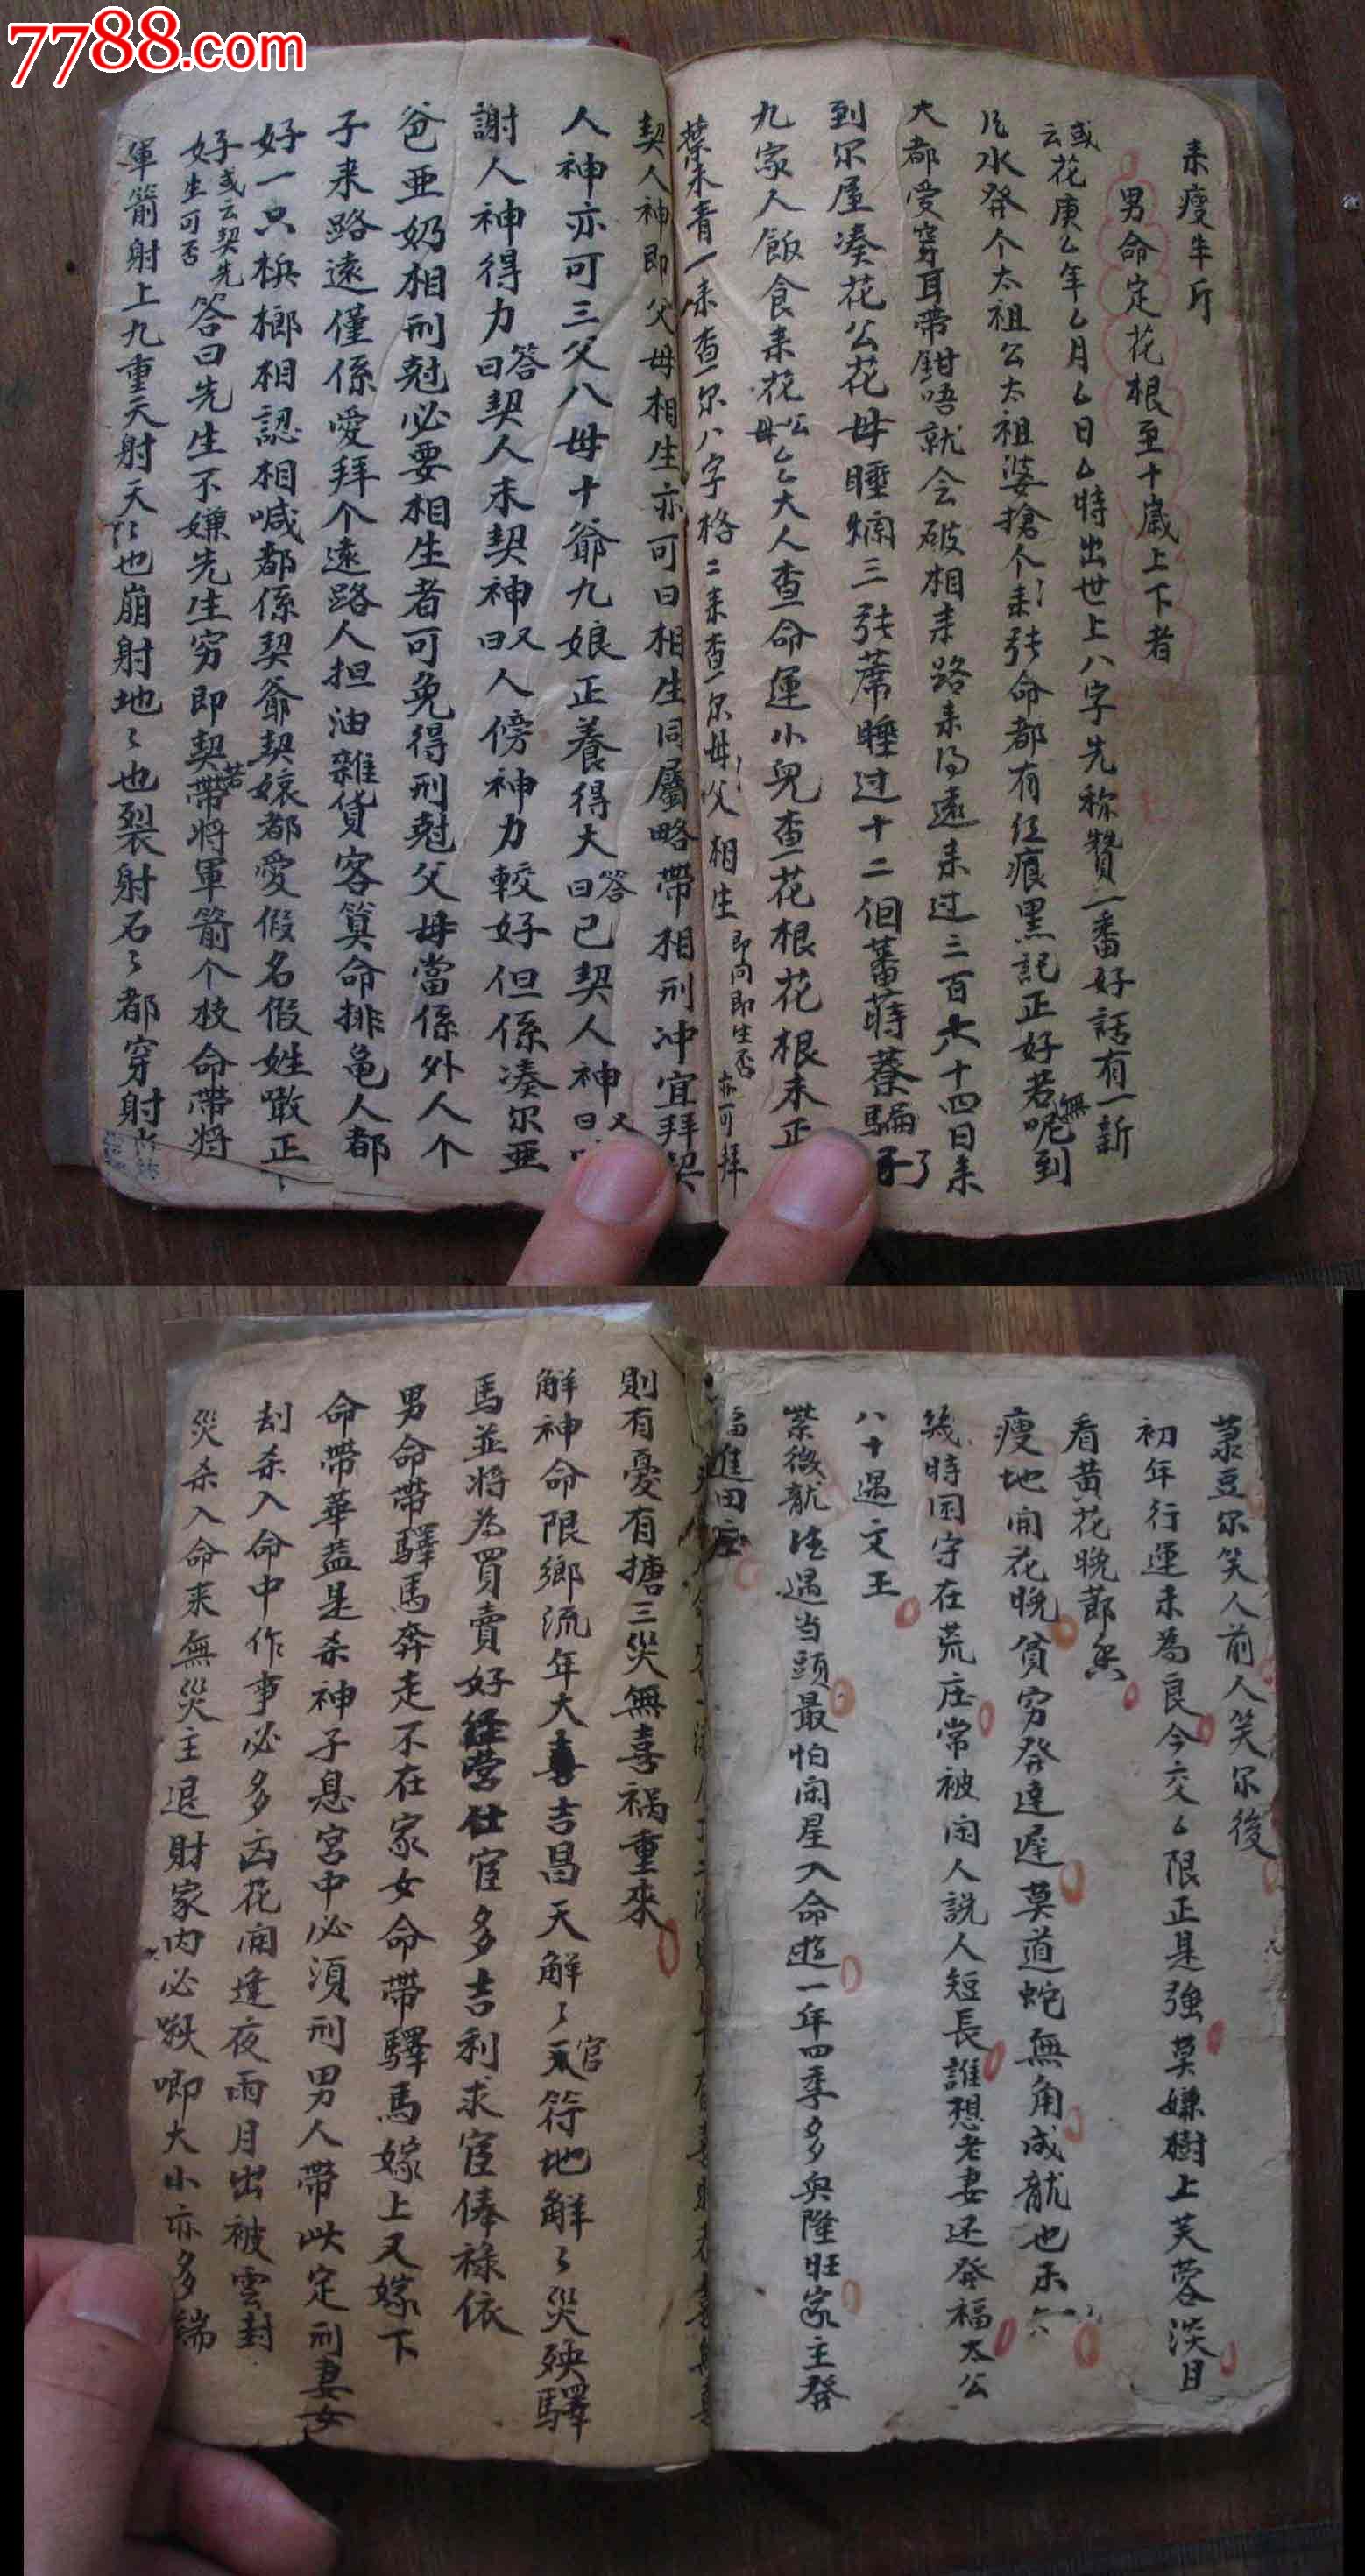 7788.com
来瘦半斤
男命定花根至十歲上下者
或云花庚厶年厶月厶日厶時出世上八字先称贊一番好話有一新
水發个太祖公太祖婆搶个来張命都有紅痕黑記正好若無呢到
大都受穿耳帶鉗唔就会破相来路来得遠来过三百六十四日来
到尔屋凑花公花母睡爛三張蓆睡过十二個蕃蒔藤騙了
九家人飯食来花公花母厶大人查命運小兒查花根花根未正
一来查尔八字格二来查尔母父相生即同即生否亦可拜
契人神即父母相生亦可曰相生同屬略帶相刑冲宜拜契
人神亦可三父八母十爺九娘正養得大答曰已契人神又曰
謝人神得力答曰契人未契神又曰人傍神力較好但係凑尔亜
爸亜奶相刑尅必要相生者可免得刑尅父母當係外人个
子来路遠僅係愛拜个遠路人担油雜貨客算命排亀人都
好一只梹榔相認相喊都係契爺契娘都愛假名假姓噉正
好或云契先生可否答曰先生不嫌先生穷即契若帶將軍箭个枝命帶將
軍箭射上九重天射天天也崩射地地也裂射石石都穿射
菉豆尔笑人前人笑尔後
初年行運未為良今交厶限正是強莫嫌樹上芙蓉淡且
看黄花晚節香
瘦地開花晚貧穷發達遲莫道蛇無角成龍也未
幾時困守在荒庄常被闲人説人短長誰想老妻还發福太公
八十遇文王
紫微龍德遇当頭最怕闲星入命逰一年四季多興隆旺家主發
福進田庄
則有憂有搪三災無喜禍重來
解神命限鄉流年大喜吉昌天解解天官符地解解災殃驛
馬並將為買賣好経营仕宦多吉利求宦俸祿依
男命帶驛馬奔走不在家女命帶驛馬嫁上又嫁下
命帶華蓋是杀神子息宮中必須刑男人帶此定刑妻女
刦杀入命中作事必多凶花開逢夜雨月出被雲封
災杀入命来無災主退財家内必啾唧大小亦多端